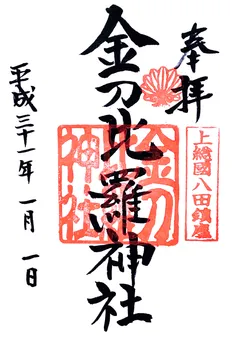 奉拝
上総國八田鎮座
金刀比羅神社
金刀
神社
平成三十一年 一月 一日